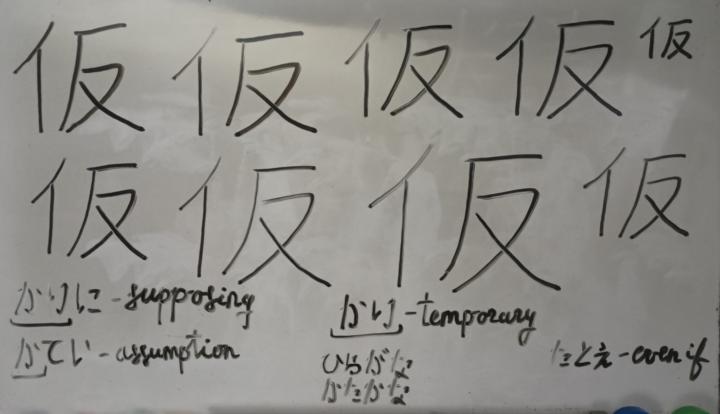 仮 仮 仮 仮 仮
仮 仮 仮 仮
かりに - supposing
かてい - assumption
かり - temporary
ひらがな
かたかな
たとえ - even if